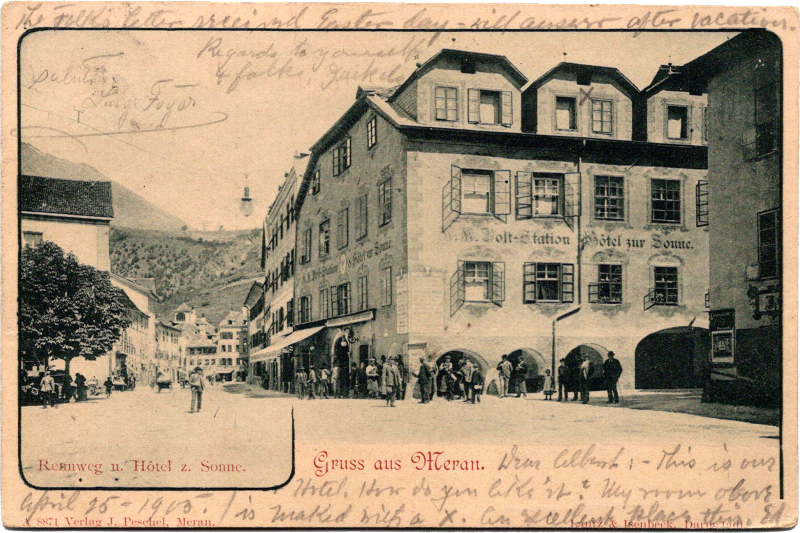 The Folks letter received Easter day - will answer after vacation.
Regards to yourself
& folks,
K. K. Post-Station Hôtel zur Sonne.
Hôtel zur Sonne
Rennweg u. Hôtel z. Sonne.
Gruss aus Meran.
Dear Albert: - This is our
April 25 - 1905.
Hotel. How do you like it? My room above
is marked with a X. An excellent place this. Ed
8871 Verlag J. Peschel, Meran.
Lautz & Isenbeck, Darmstadt